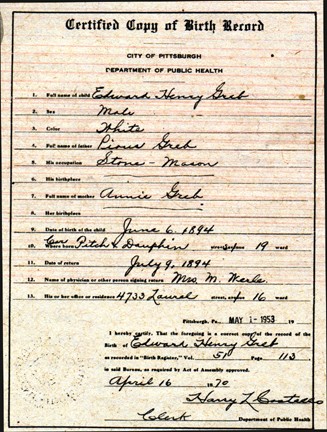 Certified Copy of Birth Record
CITY OF PITTSBURGH
DEPARTMENT OF PUBLIC HEALTH
1. Full name of child Edward Henry Greb
2. Sex Male
3. Color White
4. Full name of father Pious Greb
5. His occupation Stone-Mason
6. His birthplace
7. Full name of mother Annie Greb
8. Her birthplace
9. Date of birth of the child June 6. 1894
10. Where born Cor Pitch & Dauphin street, 19 ward
11. Date of return July 9. 1894
12. Name of physician or other person signing return Mrs. M. Werle
13. His or her office or residence 4733 Laurel street, 16 ward
Pittsburgh, Pa., MAY 1-1953 19
I hereby certify, That the foregoing is a correct copy of the record of the
Birth of Edward Henry Greb
as recorded in "Birth Register," Vol. 51 Page 113
in said Bureau, as required by Act of Assembly approved.
April 16 1870
Harry L Costello
Clerk Department of Public Health